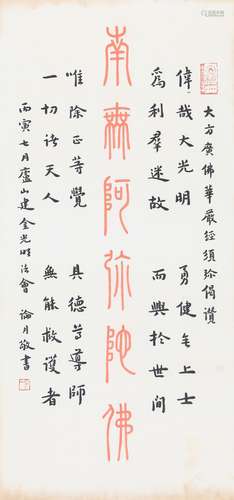 大方廣佛華嚴經須弥偈讚
偉哉大光明 勇健无上士
爲利羣迷故 而興於世間
南無阿弥陀佛
唯除正等覺 具德尊導師
一切諸天人 無能救護者
丙寅七月廬山建金光明法會 論月敬書